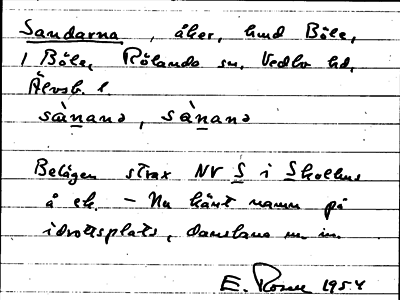 Sandarna, åker, hmd Böle,
1 Böle, Rölanda sn, Vedbo hd,
Älvsb. l
sànana, sànana
Belägen strax NV S i Skolhus
å ek. – Nu känt namn på
idrottsplats, dansbana m m.
E. 1954